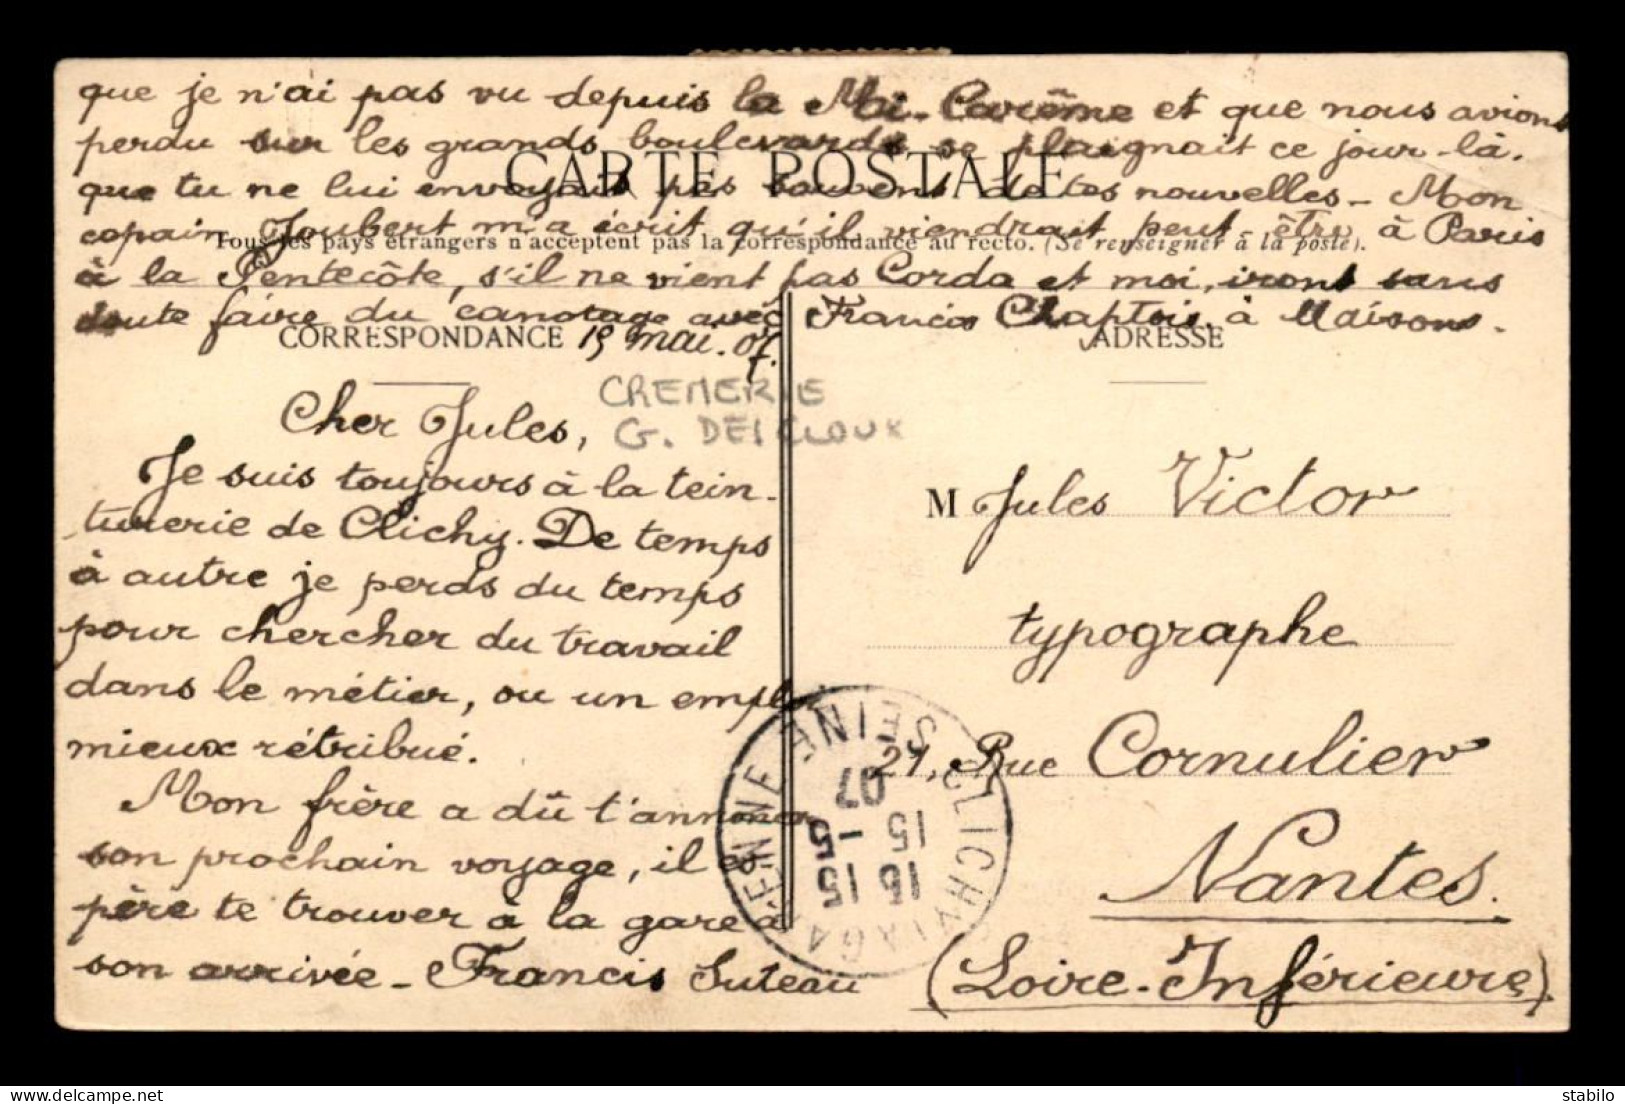 que je n'ai pas vu depuis la Mi-Carême et que nous avions
perdu sur les grands boulevards se plaignait ce jour-là.
CARTE POSTALE
que tu ne lui envoyais pas souvent de tes nouvelles - Mon
copain Joubert m'a écrit qu'il viendrait peut être à Paris
Tous les pays étrangers n'acceptent pas la correspondance au recto. (Se renseigner à la poste).
à la Pentecôte, s'il ne vient pas Corda et moi, irons sans
doute faire du canotage avec Francis Chaptois, à Maisons-
CORRESPONDANCE 15 mai. 07.
ADRESSE
CREMERIE
G.
Cher Jules,
Je suis toujours à la tein-
turerie de Clichy. De temps
à autre je perds du temps
pour chercher du travail
dans le métier, ou un emploi
mieux rétribué.
Mon frère a dû t'annoncer
son prochain voyage, il es-
père te trouver à la gare à
son arrivée - Francis Suteau
M Jules Victor
typographe
21, Rue Cornulier
Nantes.
(Loire-Inférieure)
CLICHY LA GARENNE SEINE
15 15
15 -5
07